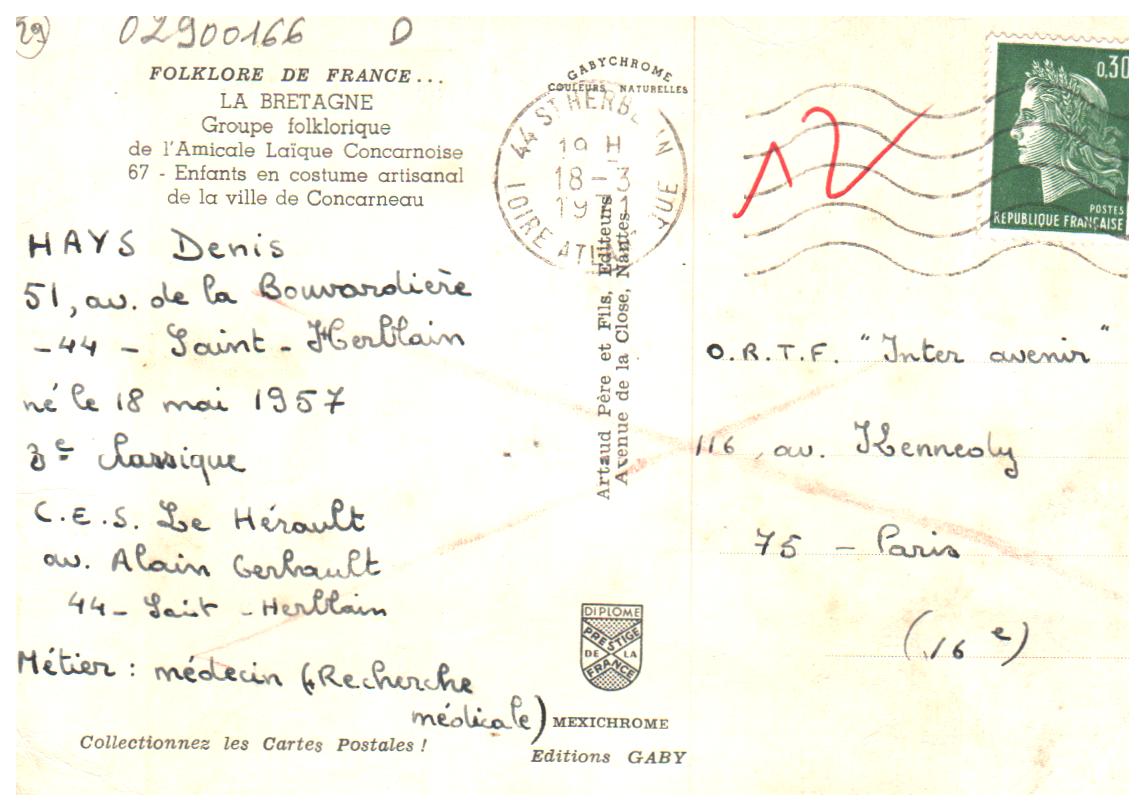 29
02900166 D
FOLKLORE DE FRANCE...
LA BRETAGNE
Groupe folklorique
de l'Amicale Laïque Concarnoise
67 - Enfants en costume artisanal
de la ville de Concarneau
HAYS Denis
51, av. de la Bouvardière
-44 - Saint-Herblain
né le 18 mai 1957
3e classique
C.E.S. Le Hérault
av. Alain Gerbault
44- Sait - Herblain
Métier : médecin (Recherche
médicale)
Collectionnez les Cartes Postales !
GABYCHROME
COULEURS NATURELLES
44 ST HERBLAIN
19 H
18-3
19
LOIRE ATLANTIQUE
Artaud Père et Fils, Editeurs
Avenue de la Close, Nantes
DIPLOME
PRESTIGE
DE LA
FRANCE
MEXICHROME
Editions GABY
0,30
POSTES
REPUBLIQUE FRANÇAISE
O.R.T.F. "Inter avenir"
116, av. Kennedy
75 - Paris
(16e)